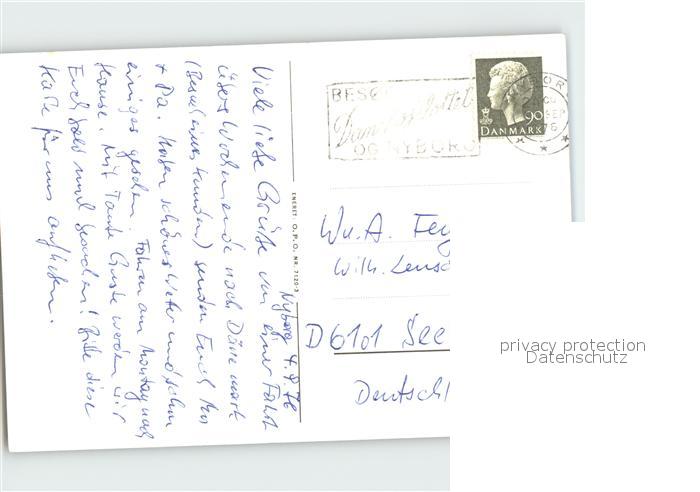 Nyborg 4.9.76
Viele liebe Grüße von einer Fahrt
übers Wochenende nach Dänemark
(Besuch eines Kunden) senden Euch
+ Pa. Haben schönes Wetter und schon
einiges gesehen. Fahren am Montag nach
Hause. Mit Tante werden wir
Euch bald mal besuchen! Bitte diese
Karte für uns aufheben.
ENERET: O.P.O. NR. 7120-3
BESØ
Danehofslottet
OG NYBORG
90
DANMARK
NYBORG
SEP
76
Wilh.
D6101 See
Deutschl
privacy protection
Datenschutz